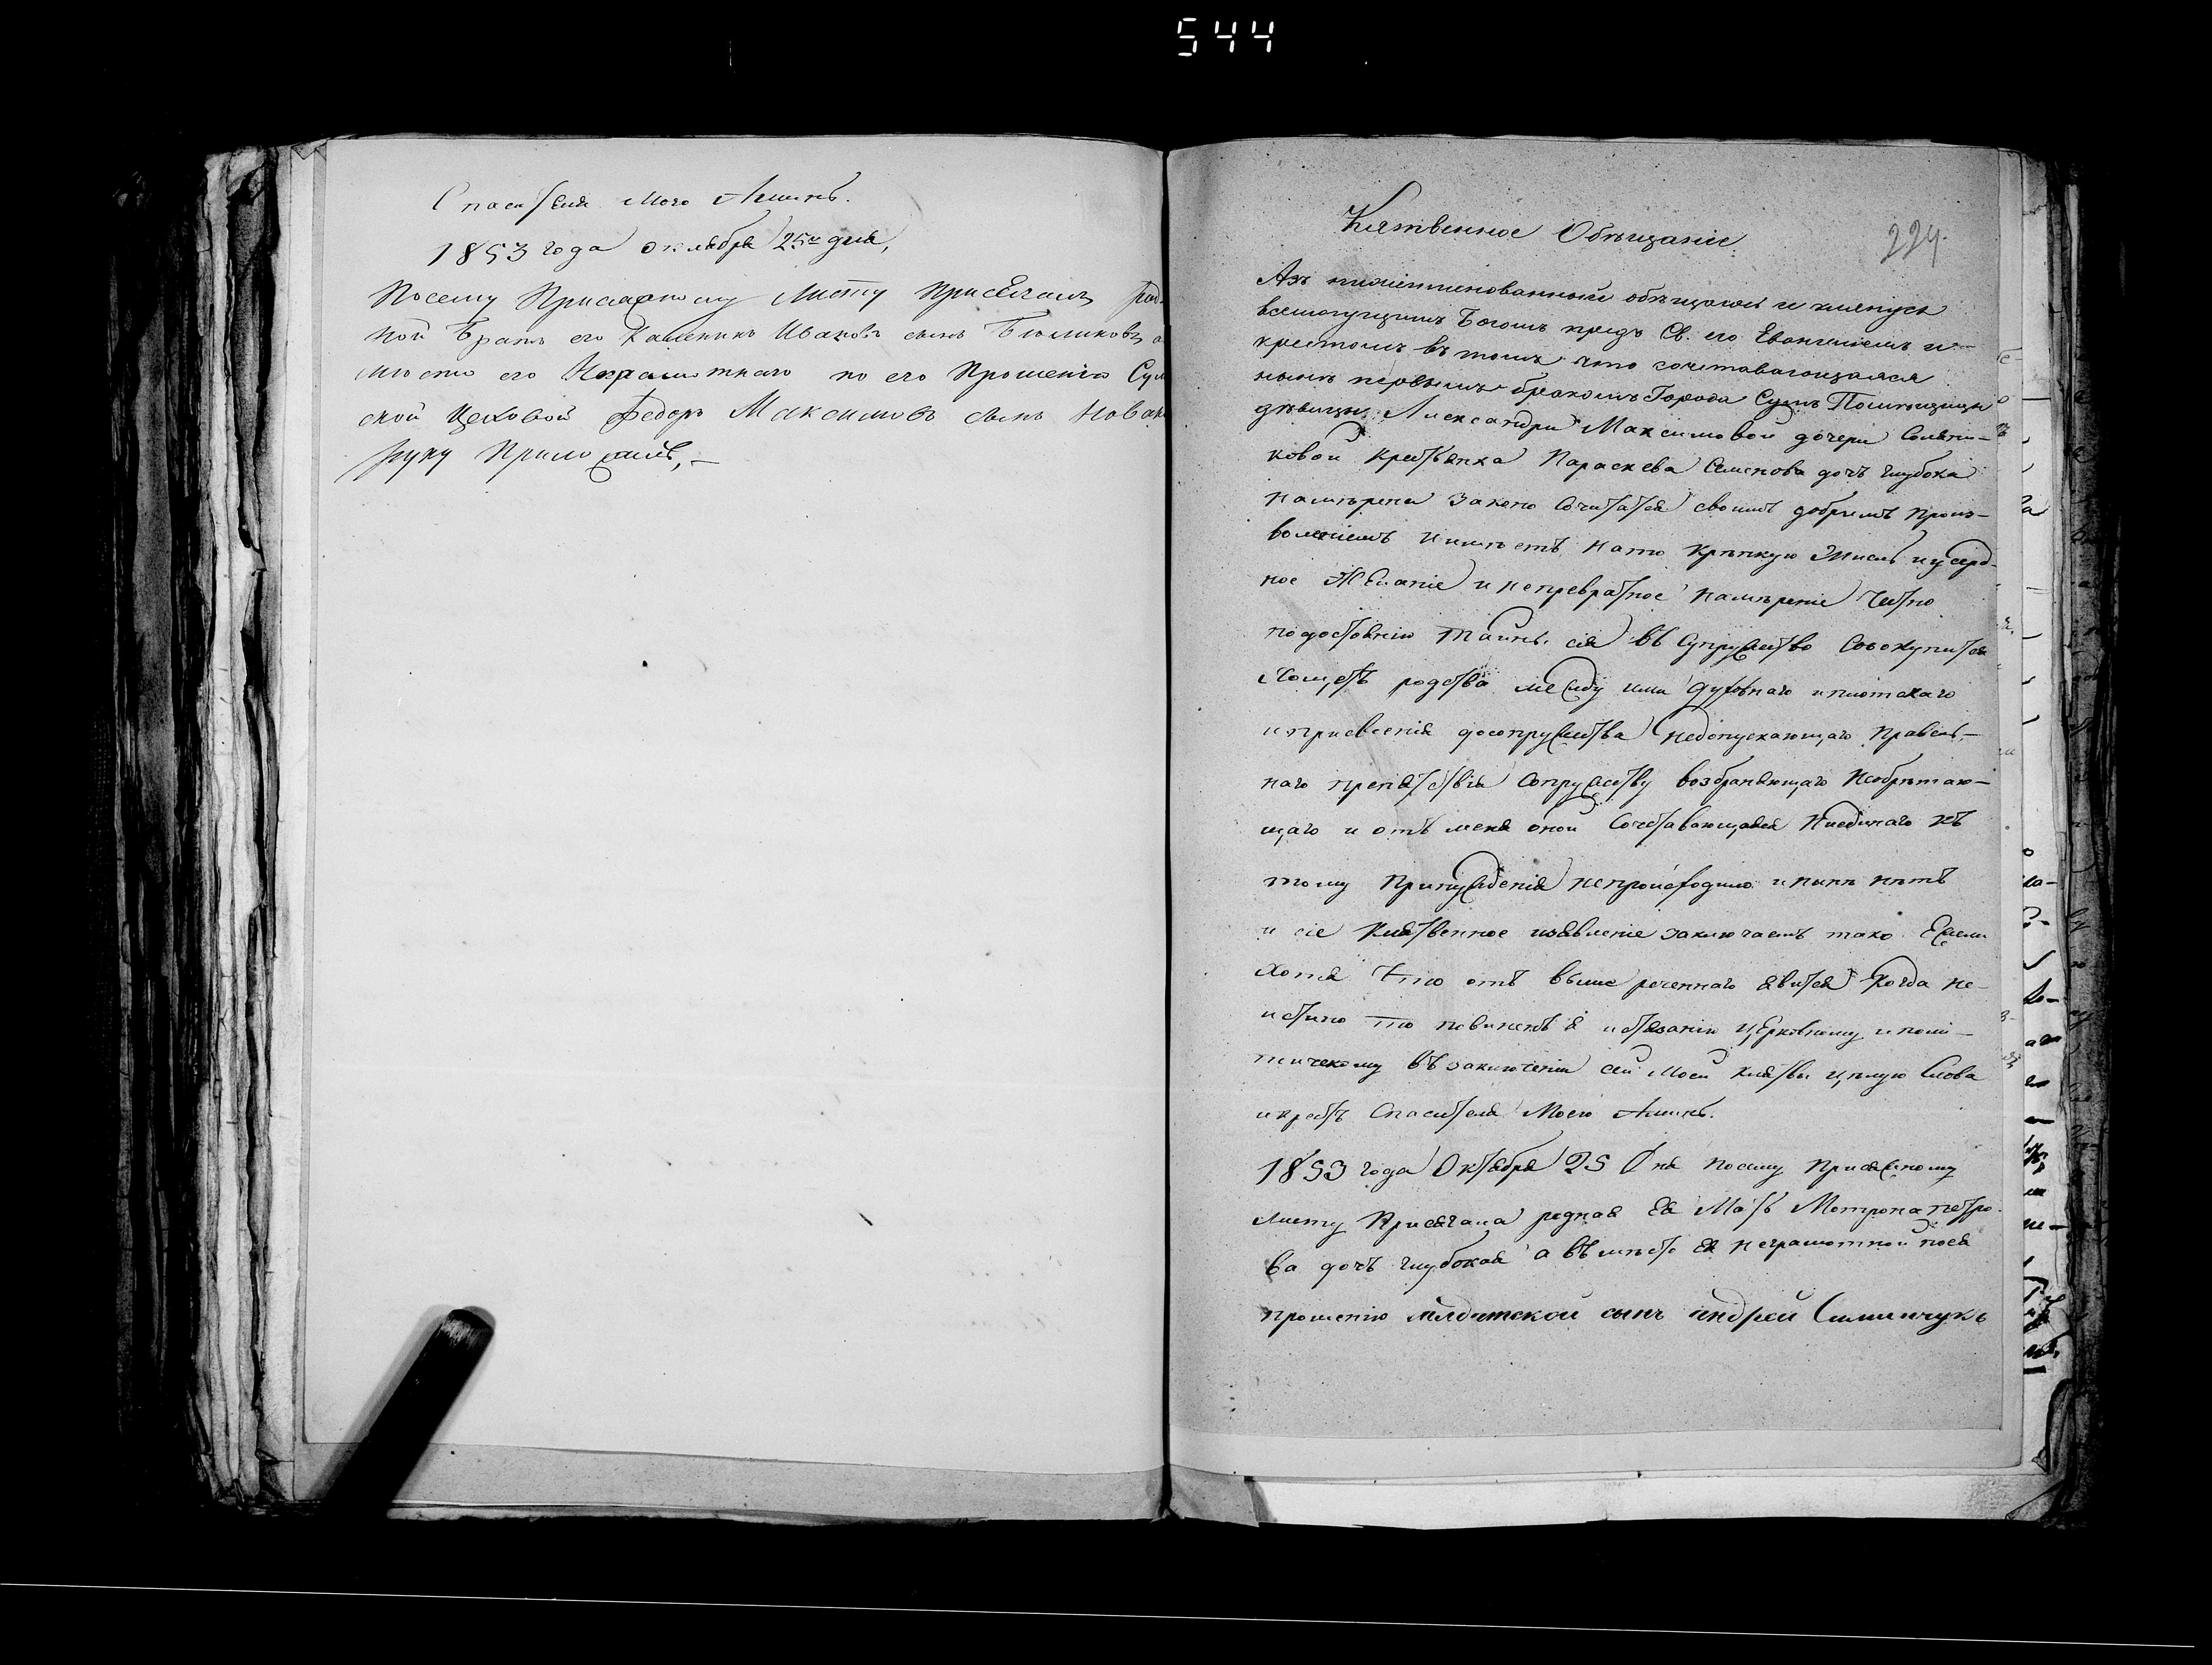 544
Спасителя Моего Аминь.
1853 года октября 25го дня,
Посему Присяжному Листу Присягалъ род-
ной Братъ его Каленикъ Ивановъ сынъ Бѣликовъ а
мѣсто его Неграмотнаго по его Прошенію Сум
ской Цеховой Федоръ Максимовъ сынъ Новак
руку Приложилъ,—
Клятвенное Обѣщаніе
224.
Азъ нижеименованный обѣщаюсь и клянусь
всемогущимъ Богомъ предъ Св. его Евангеліемъ и
крестомъ въ томъ что сочетавающаяся
нынѣ первымъ бракомъ Города Сумъ Помѣщицы
дѣвицы Александры Максимовой дочери
ковой крестьянка Параскева Семенова дочь Глубока
намѣрена законо Сочетатся своимъ добрымъ Произ-
воленіемъ и имѣетъ на то крѣпкую Мысль и усерд-
ное Желаніе и непревратное намѣреніе Честно
по достоянію тайны сія въ Супружество Совокупится
родства между ими духовнаго и плотскаго
и присвоенія до сопружества недопускающаго Правиль-
наго препятствія Сопружеству возбраняющаго Необрѣтаю-
щаго и отъ меня оной Сочетавающаяся Ниединаго къ
тому Принужденія непроисходило и нынѣ нѣтъ
и сіе Клятвенное изъявленіе заключаетъ тако Ежели
Хотя Что отъ выше реченнаго явится Когда не-
истино то повиненъ я истязанію Церковному и поли-
тическому въ заключеніи сей Моей клятвы цѣлую Слова
и крестъ Спасителя Моего Аминь.
1853 года Октября 25 Дня посему Присяжному
Листу Присягала родная Ея Мать Мотрона Петро-
ва дочь Глубокая а вмѣсто Ея неграмотной по ея
прошенію сынъ Андрей